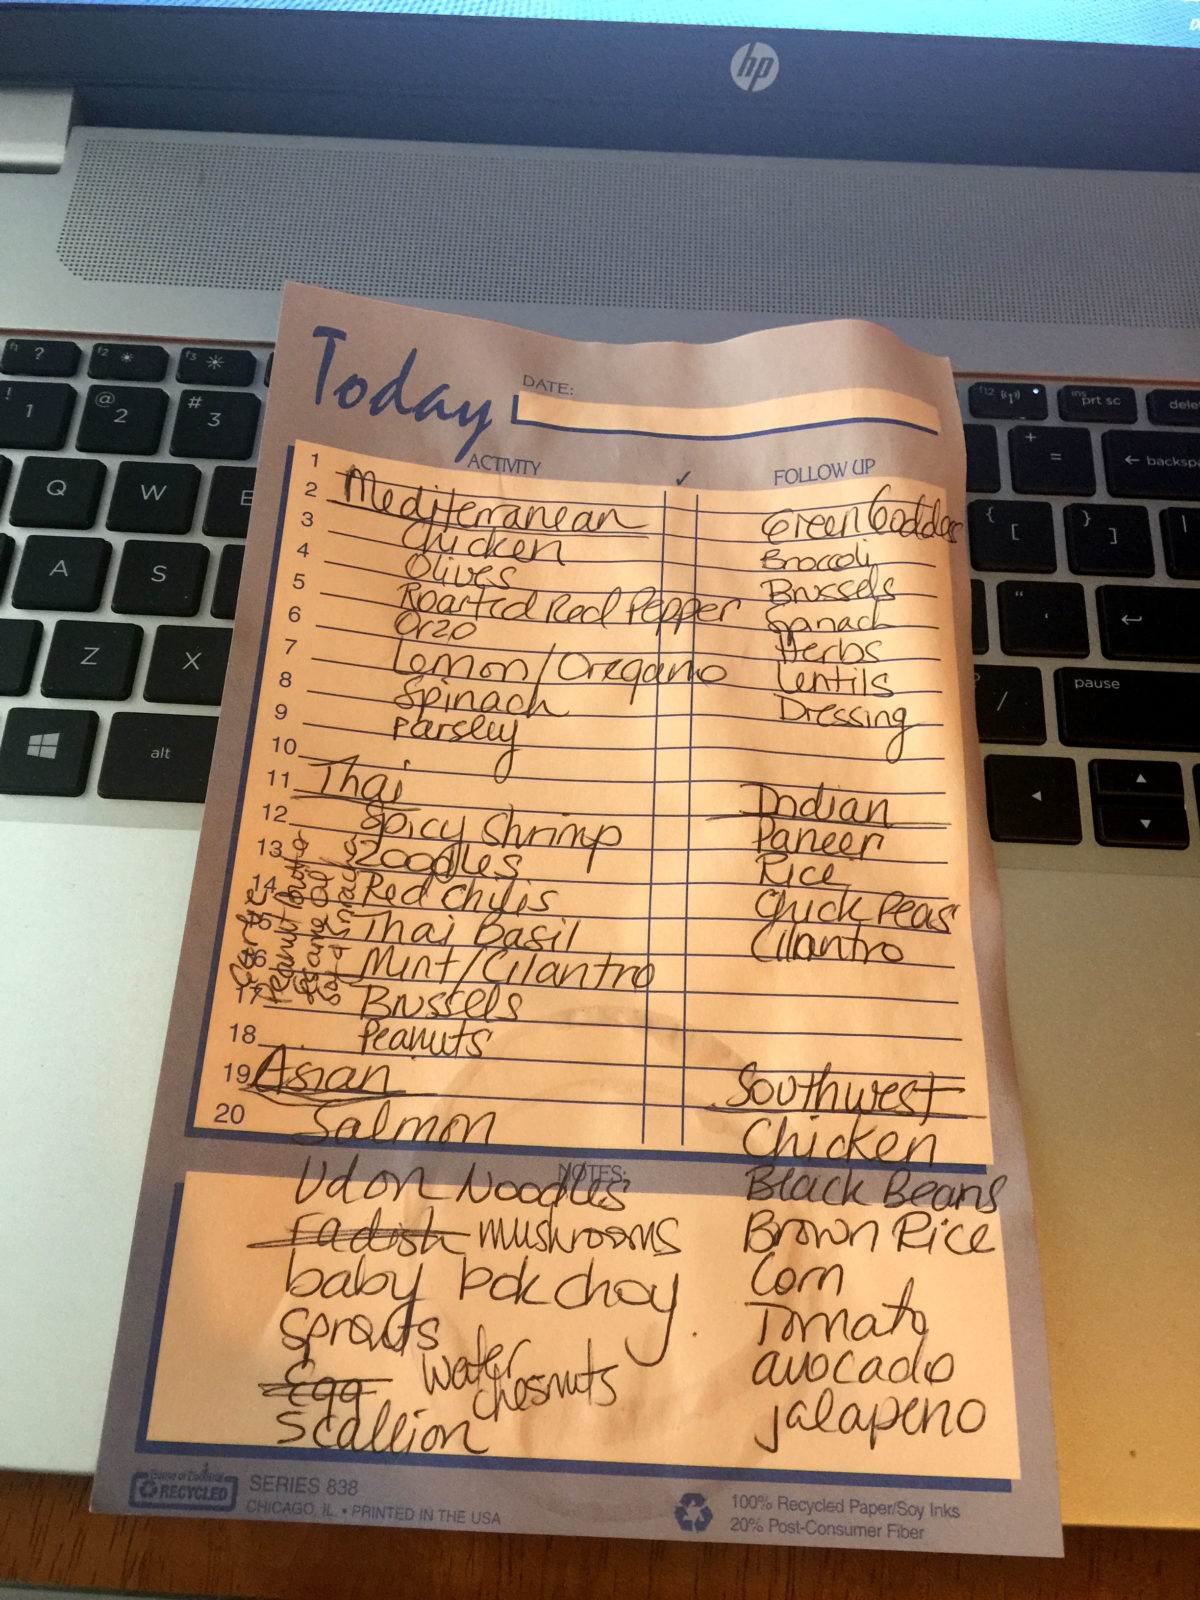 hp
Today
DATE:
ACTIVITY
✓
FOLLOW UP
1
2
3
4
5
6
7
8
9
10
11
12
13
14
15
16
17
18
19
20
Mediterranean
Chicken
Olives
Roasted Red Pepper
Orzo
Lemon/Oregano
Spinach
Parsley
Thai
Spicy Shrimp
Zoodles
Red Chilis
Thai Basil
Mint/Cilantro
Brussels
Peanuts
Peanut Butter
Sesame Oil
Asian
Salmon
Udon Noodles
radish mushrooms
baby bok choy
Sprouts
Egg water chesnuts
Scallion
Green Goddess
Broccoli
Brussels
Spanach
Herbs
Lentils
Dressing
Indian
Paneer
Rice
Chick Peas
Cilantro
Southwest
Chicken
Black Beans
Brown Rice
Corn
Tomato
avocado
jalapeno
NOTES:
RECYCLED
SERIES 838
CHICAGO, IL. • PRINTED IN THE USA
100% Recycled Paper/Soy Inks
20% Post-Consumer Fiber
f1 ?
f2
f3
f12
ins prt sc
dele
! 1
@ 2
# 3
+ =
← backsp
Q
W
E
{ [
} ]
A
S
" '
Z
X
? /
pause
alt